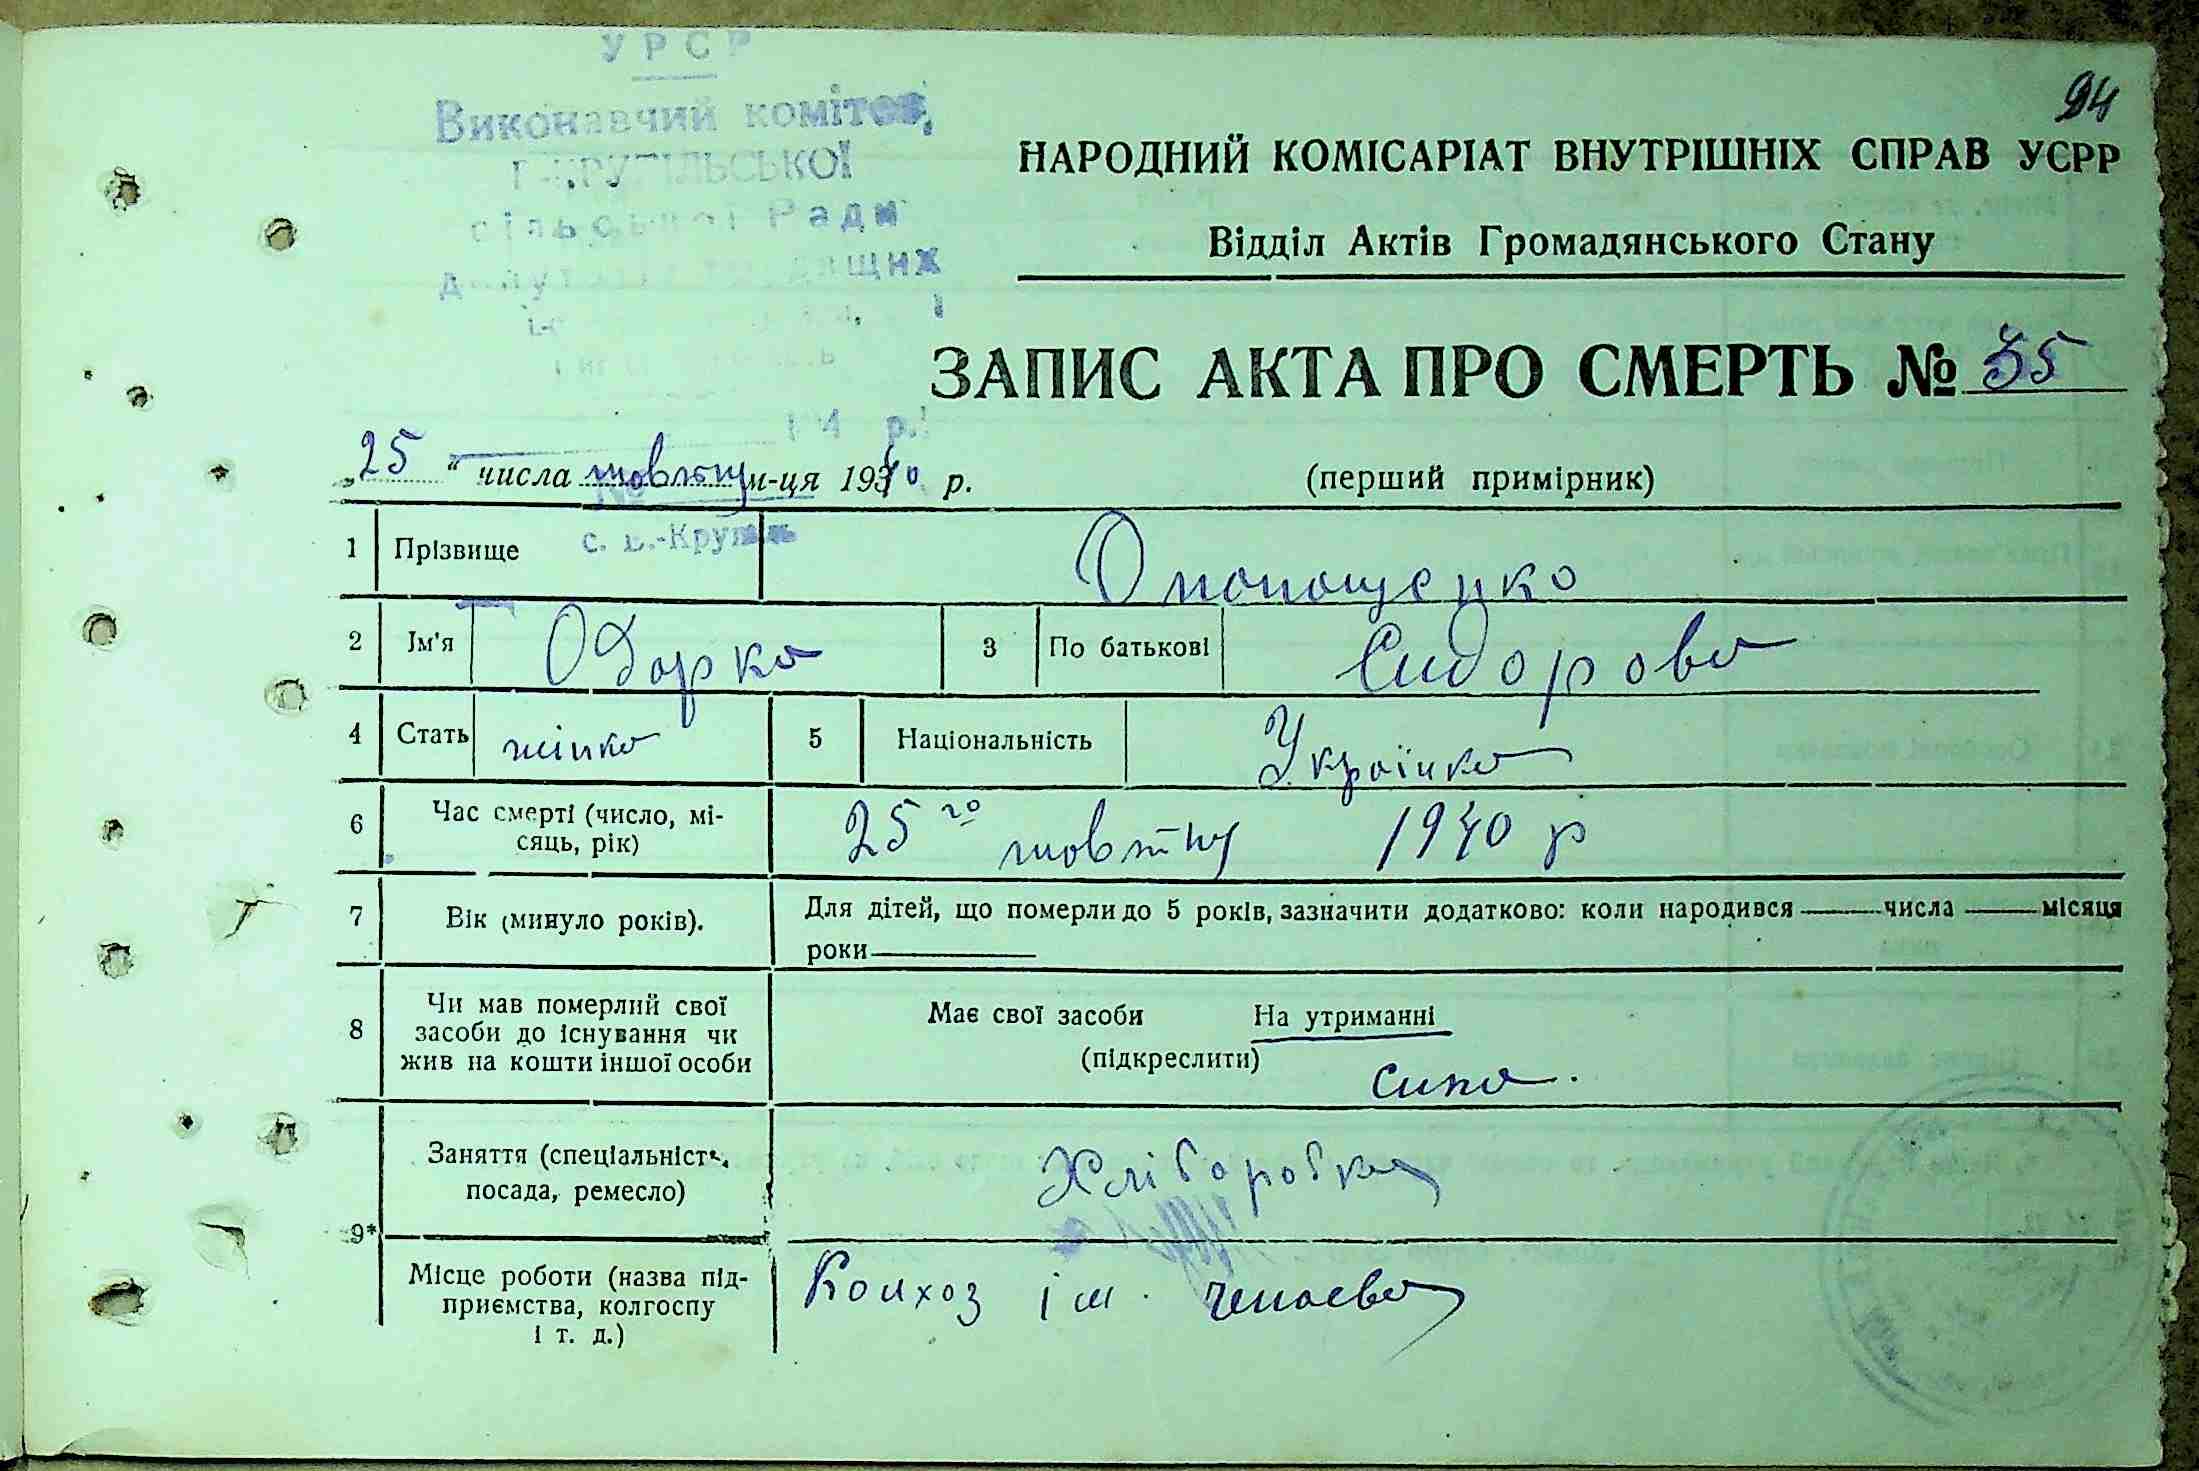 УРСР
94
Виконавчий комітет
НАРОДНИЙ КОМІСАРІАТ ВНУТРІШНІХ СПРАВ УСРР
сільської Ради
Відділ Актів Громадянського Стану
ЗАПИС АКТА ПРО СМЕРТЬ № 35
„25“ числа жовтня м-ця 1940 р.
(перший примірник)
1 Прізвище
с. В.-Круполь
2 Ім'я Одарка 3 По батькові Сидорова
4 Стать жінка 5 Національність Українка
6 Час смерті (число, мі-
сяць, рік) 25го жовтня 1940 р
7 Вік (минуло років). Для дітей, що померли до 5 років, зазначити додатково: коли народився — числа — місяця
роки
8 Чи мав померлий свої
засоби до існування чи
жив на кошти іншої особи
Має свої засоби На утриманні
(підкреслити)
сина.
9* Заняття (спеціальність,
посада, ремесло) Хліборобка
Місце роботи (назва під-
приємства, колгоспу
і т. д.) Колхоз ім. Чепаєва